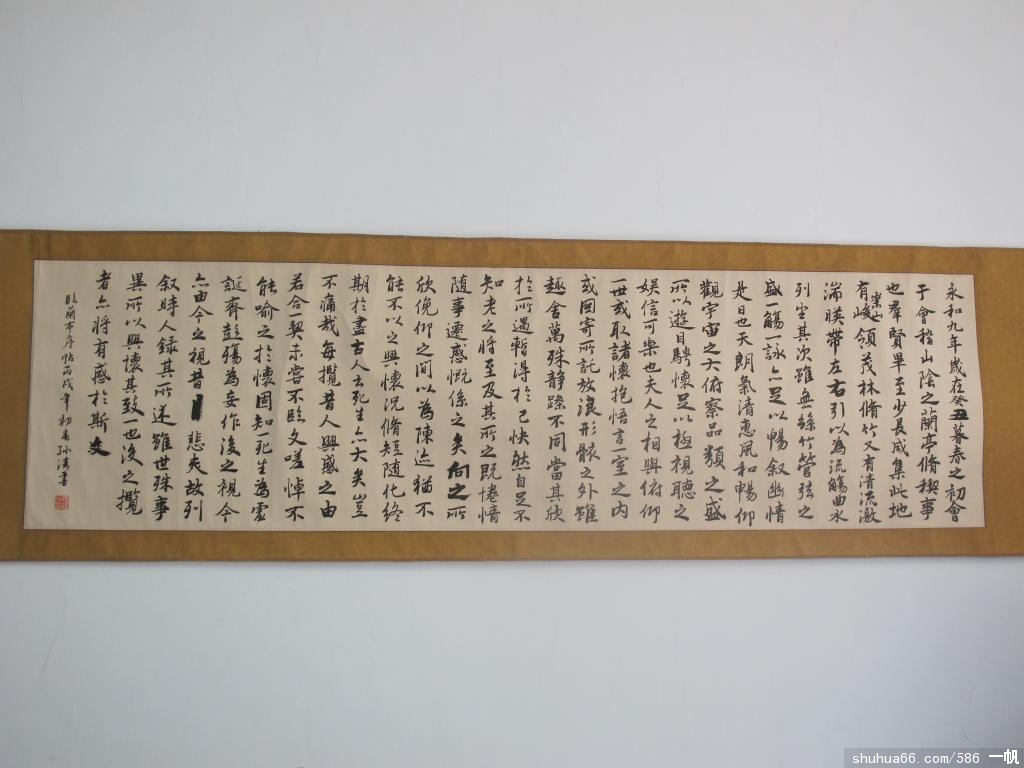 永和九年歲在癸丑暮春之初會
于會稽山陰之蘭亭脩稧事
也羣賢畢至少長咸集此地
有崇山峻領茂林脩竹又有清流激
湍暎帶左右引以為流觴曲水
列坐其次雖無絲竹管弦之
盛一觴一詠亦足以暢叙幽情
是日也天朗氣清惠風和暢仰
觀宇宙之大俯察品類之盛
所以遊目騁懷足以極視聽之
娛信可樂也夫人之相與俯仰
一世或取諸懷抱悟言一室之內
或因寄所託放浪形骸之外雖
趣舍萬殊靜躁不同當其欣
於所遇暫得於己快然自足不
知老之將至及其所之既惓情
隨事遷感慨係之矣向之所
欣俛仰之間以為陳迹猶不
能不以之興懷況脩短隨化終
期於盡古人云死生亦大矣豈
不痛哉每攬昔人興感之由
若合一契未嘗不臨文嗟悼不
能喻之於懷固知一死生為虛
誕齊彭殤為妄作後之視今
亦由今之視昔悲夫故列
叙時人錄其所述雖世殊事
異所以興懷其致一也後之攬
者亦將有感於斯文
臨蘭亭序帖丙戌年初春孫濤書
shuhua66.com/586 一帆